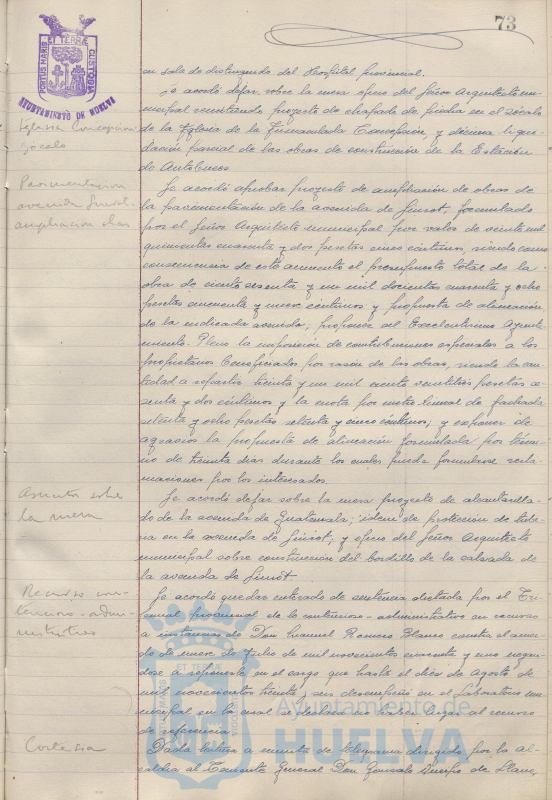 73
PORTUS MARIS ET TERRÆ CUSTODIA
AYUNTAMIENTO DE HUELVA
en sala de distinguido del Hospital provincial.
Se acordó dejar sobre la mesa oficio del Señor Arquitecto mu-
nicipal remitiendo proyecto de chapado de piedra en el zócalo
Iglesia Concepción
zócalo
de la Iglesia de la Inmaculada Concepción y décima liqui-
dación parcial de las obras de construcción de la Estación
de Autobuses
Pavimentacion
avenida Guirot.
ampliación obras
Se acordó aprobar proyecto de ampliación de obras de
la pavimentación de la avenida de Guirot, formulado
por el Señor Arquitecto municipal por valor de veinte mil
quinientas cuarenta y dos pesetas cinco céntimos, siendo como
consecuencia de este aumento el presupuesto total de la
obra de ciento sesenta y un mil doscientas cuarenta y ocho
pesetas cuarenta y nueve céntimos y propuesta de alineación
de la indicada avenida; proponer al Excelentísimo Ayunta-
miento Pleno la imposición de contribuciones especiales a los
propietarios beneficiados por razón de las obras, siendo la can-
tidad a repartir treinta y un mil ciento veintitrés pesetas
y dos céntimos y la cuota por metro lineal de fachada
setenta y ocho pesetas setenta y cinco céntimos; y exponer de
agravios la propuesta de alineación formulada por térmi-
no de treinta días durante los cuales puede formularse recla-
maciones por los interesados.
Asuntos sobre
la mesa
Se acordó dejar sobre la mesa proyecto de alcantarilla-
do de la avenida de Guatemala; idem de protección de tube-
ria en la avenida de Guirot, y oficio del Señor Arquitecto
municipal sobre construcción del bordillo de la calzada de
la avenida de Guirot.
Recurso con-
tencioso-admi-
nistrativo
Se acordó quedar enterado de sentencia dictada por el Tri-
bunal provincial de lo contencioso-administrativo en recurso
a instancias de Don Manuel Romero Blanco contra el acuer-
do de nueve de Julio de mil novecientos cincuenta y uno negan-
dose a reponerle en el cargo que hasta el diez de Agosto de
mil novecientos treinta y seis desempeñó en el Laboratorio mu-
nicipal en la cual se declara no haber lugar al recurso
de referencia.
Cortesia
Dada lectura a minuta de telegrama dirigido por la al-
caldia al Teniente General Don Gonzalo Queipo de Llano,
Ayuntamiento de
HUELVA